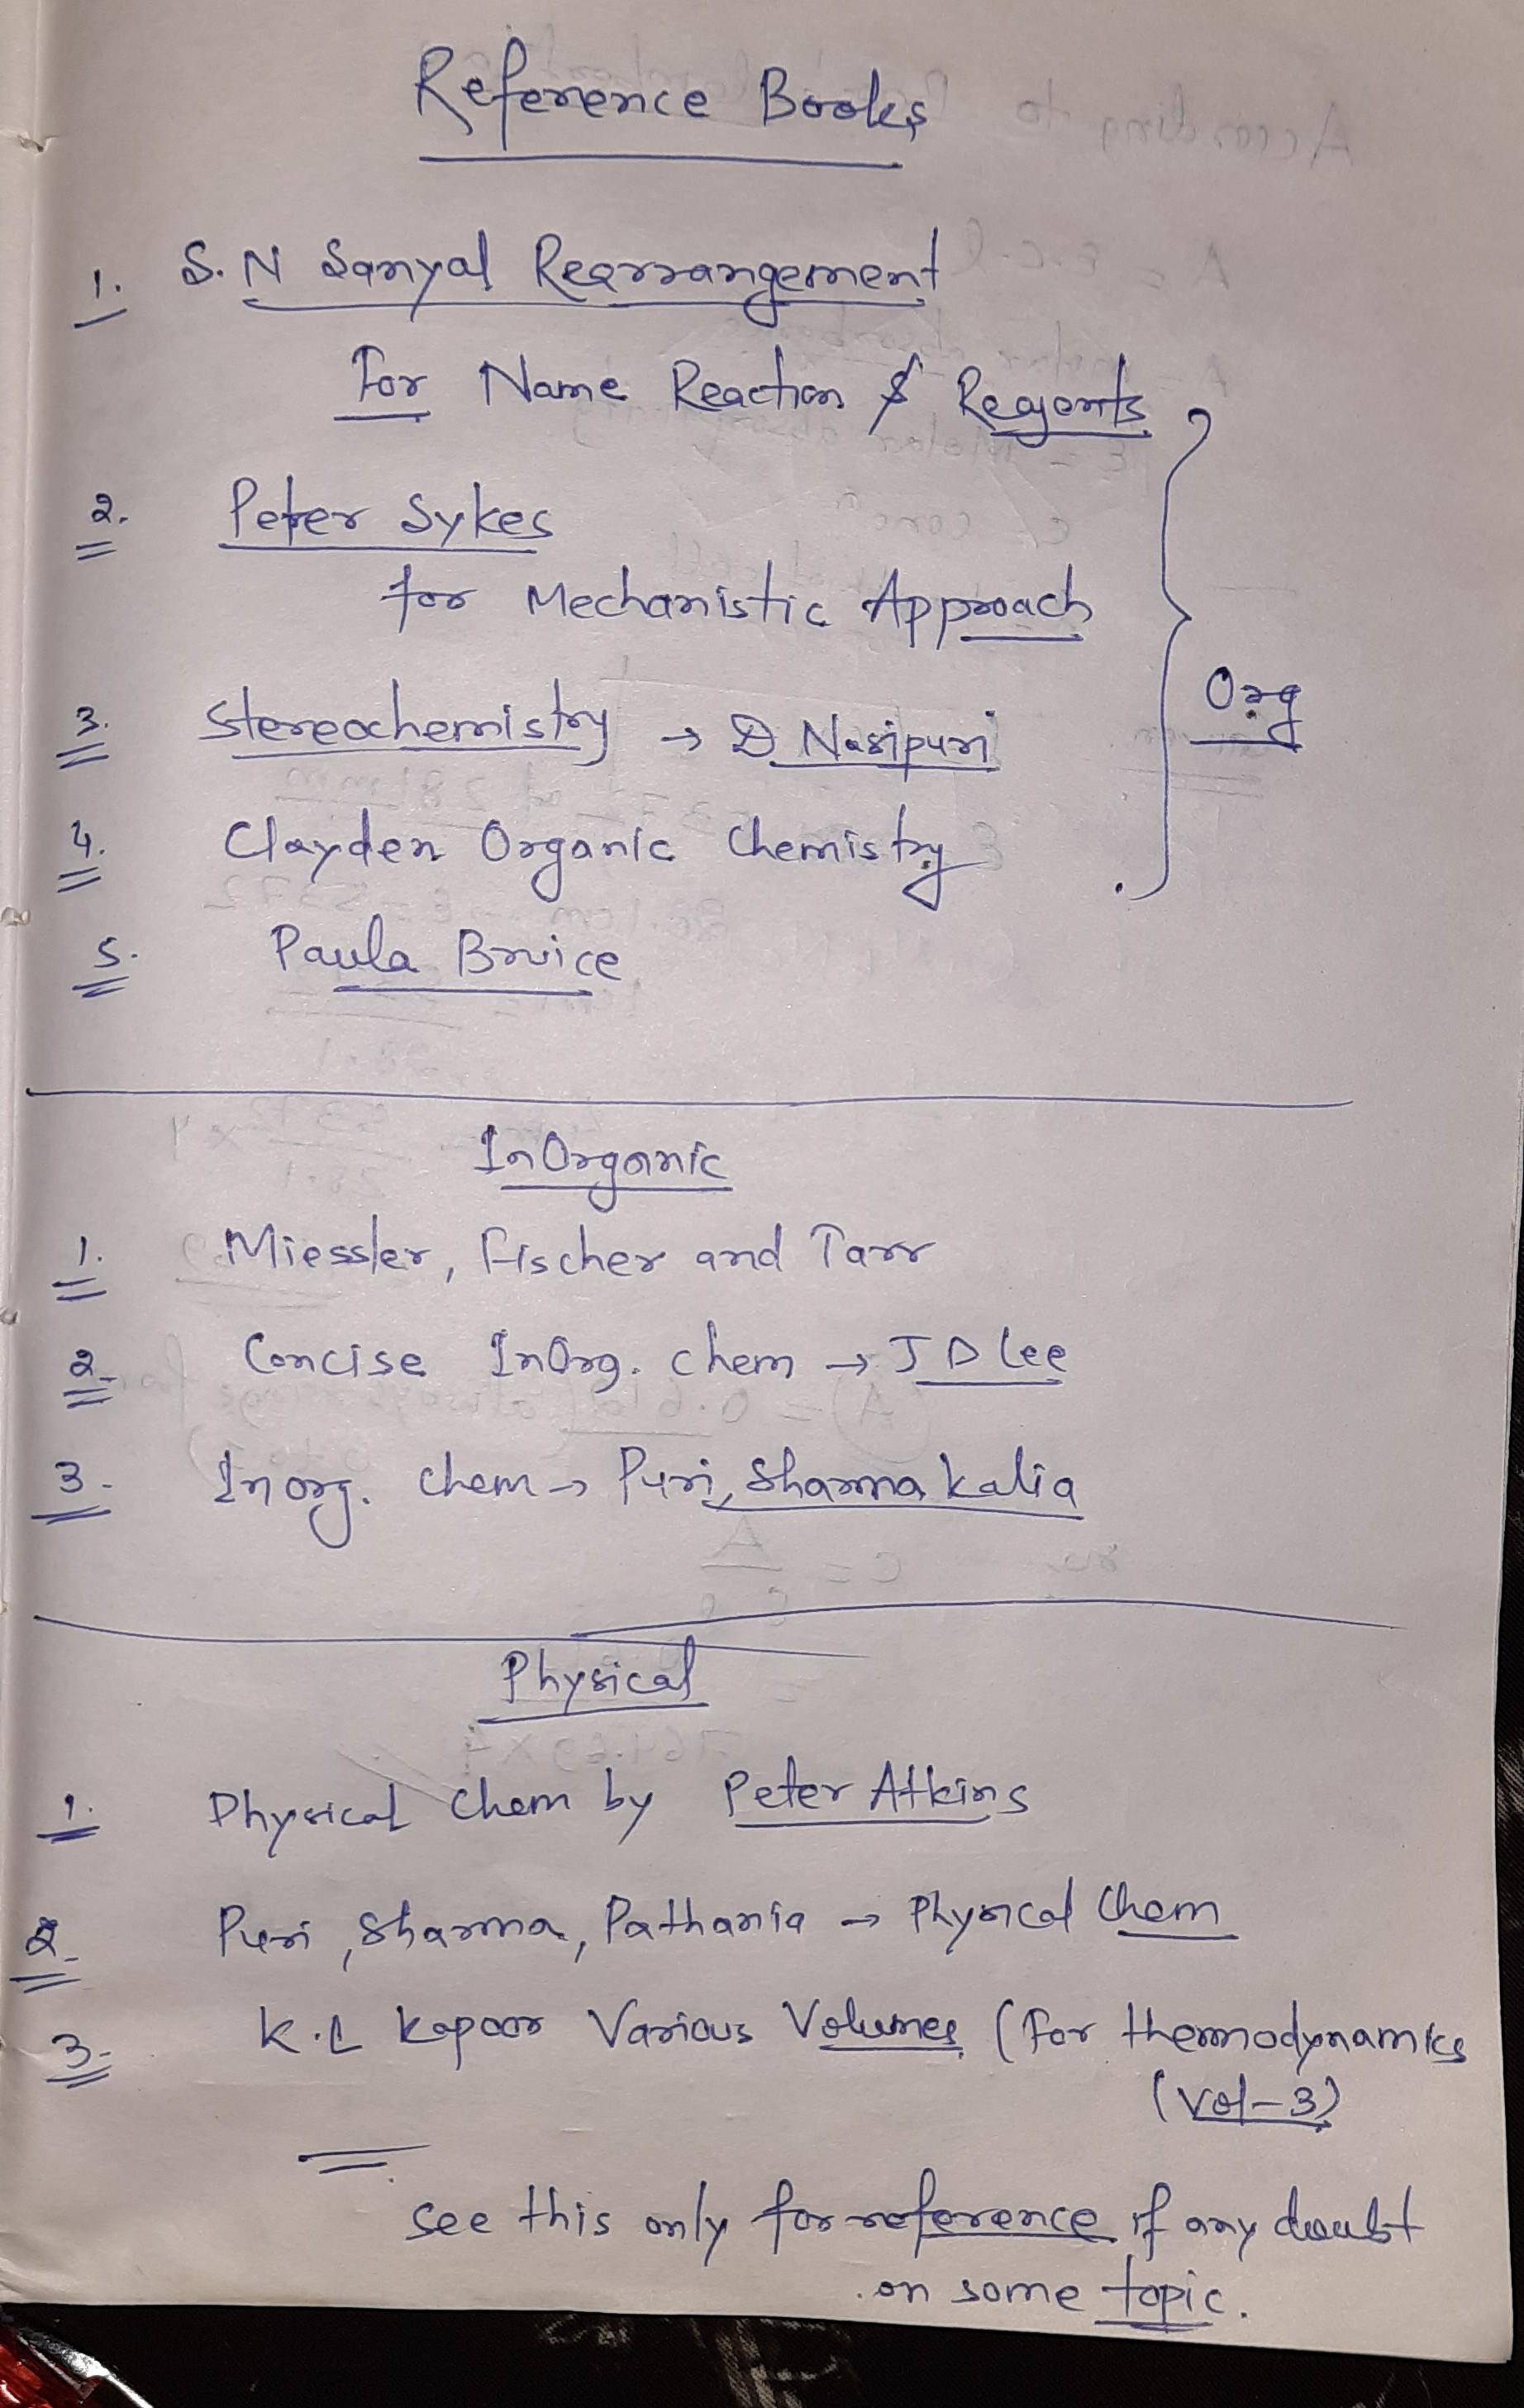 Reference Books
1. S.N Sanyal Rearrangement
For Name Reaction & Regents
2. Peter Sykes
for Mechanistic Approach
Org
3. Stereochemistry → D Nasipuri
4. Clayden Organic Chemistry
5. Paula Bruice
InOrganic
1. Miessler, Fischer and Tarr
2. Concise InOrg. Chem → J D Lee
3. Inorg. Chem → Puri, Sharma Kalia
Physical
1. Physical Chem by Peter Atkins
2. Puri, Sharma, Pathania → Physical Chem
3. K.L Kapoor Various Volumes (For thermodynamics
(Vol-3)
See this only for reference if any doubt
on some topic.